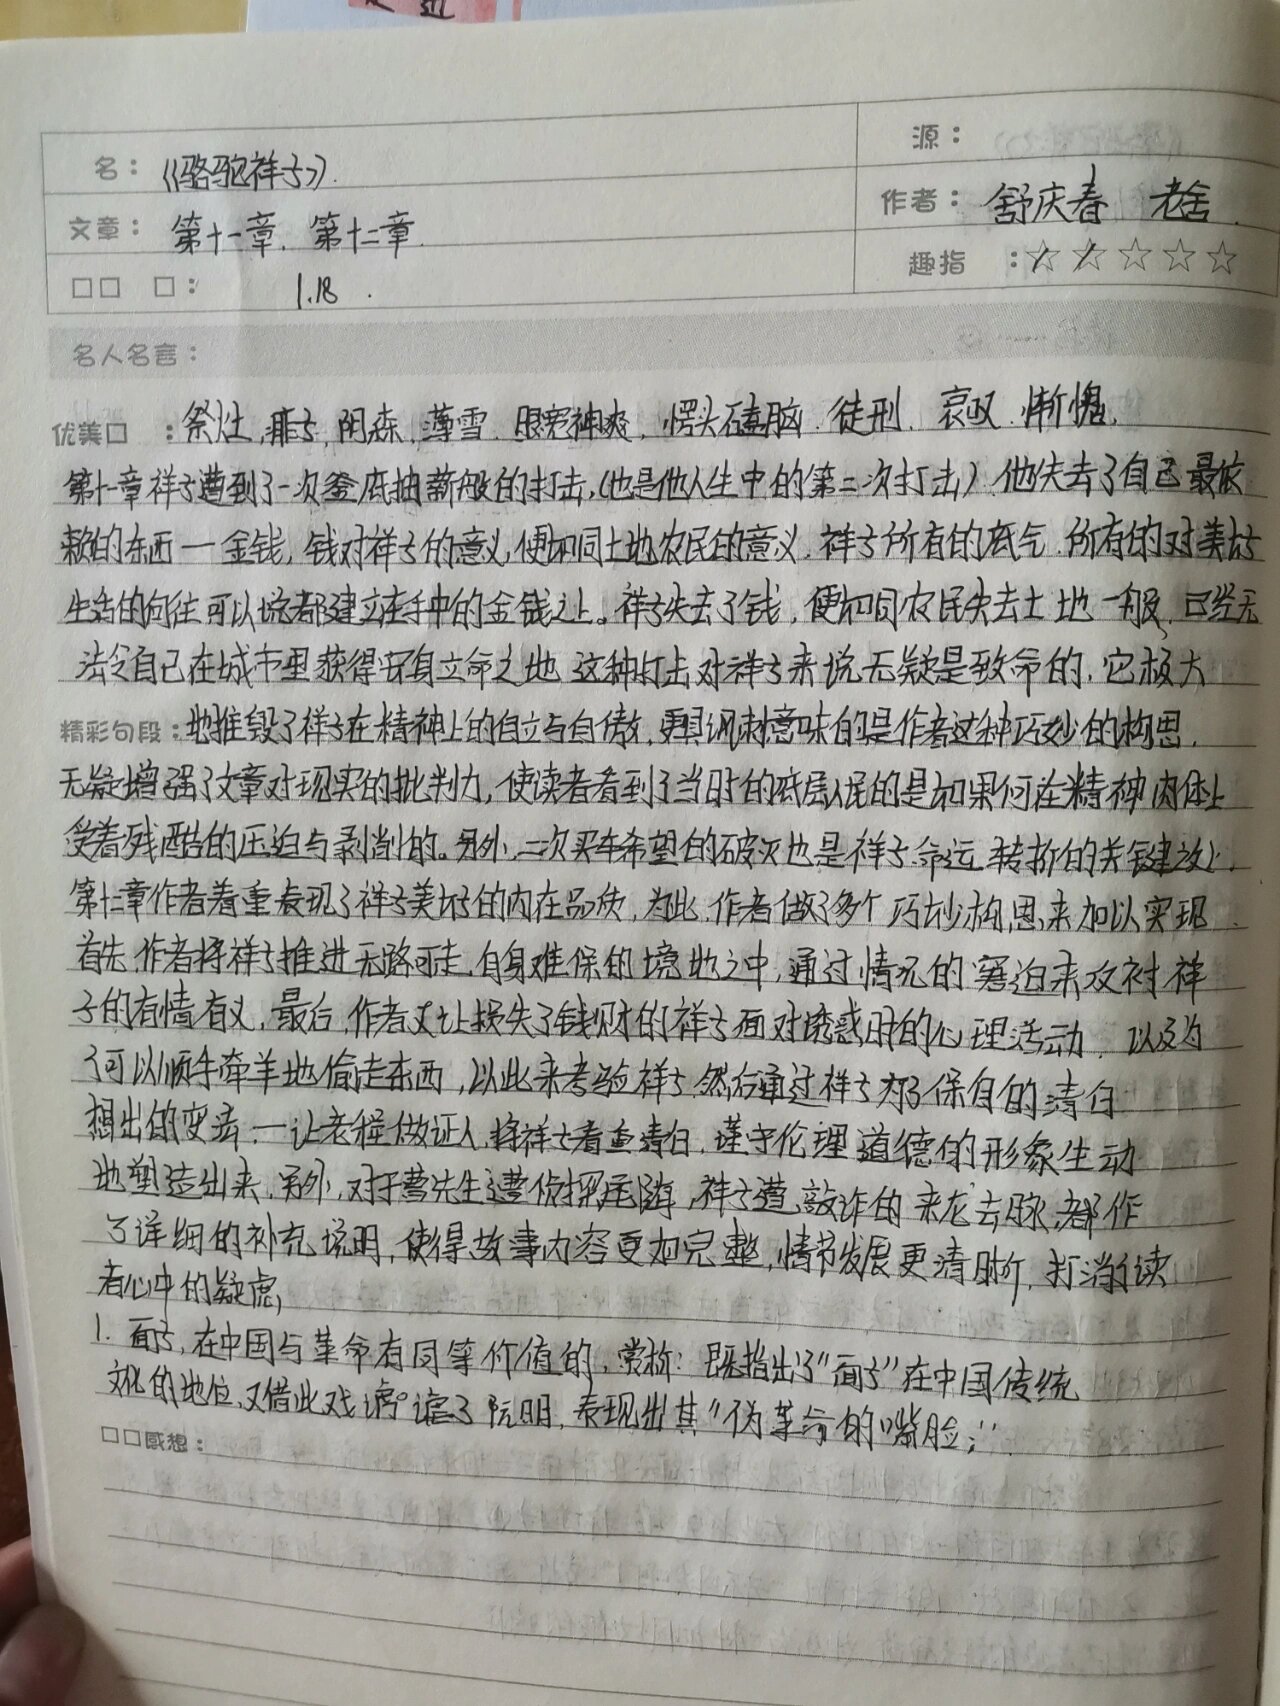 名：《骆驼祥子》.
源：
文章：第十一章. 第十二章.
作者：舒庆春 老舍.
□□ □： 1.18 .
趣指 ：☆☆☆☆☆
名人名言：
优美□ ：祭灶, 阴森, 薄雪. 眼宽神爽, 愣头磕脑. 徒刑. 哀叹. 惭愧.
第十一章祥子遭到了一次釜底抽薪般的打击,(也是他人生中的第二次打击) 他失去了自己最依
赖的东西一金钱, 钱对祥子的意义,便如同土地农民的意义. 祥子所有的底气. 所有的对美好
生活的向往可以说都建立在手中的金钱之上。祥子失去了钱, 便如同农民失去土地一般, 已经无
法令自己在城市里获得安身立命之地 这种打击对祥子来说无疑是致命的, 它极大
精彩句段：地摧毁了祥子在精神上的自立与自傲, 更具讽刺意味的是作者这种巧妙的构思,
无疑增强了文章对现实的批判力, 使读者看到了当时的底层人民的是如果何在精神肉体上
受着残酷的压迫与剥削的。另外, 二次买车希望的破灭也是祥子命运转折的关键之处,
第十二章作者着重表现了祥子美好的内在品质, 为此, 作者做了多个巧妙构思来加以实现.
首先, 作者将祥子推进无路可走, 自身难保的境地之中, 通过情况的窘迫来反衬祥
子的有情有义, 最后, 作者又让损失了钱财的祥子面对诱惑时的心理活动, 以及为
了可以顺手牵羊地偷走东西, 以此来考验祥子, 然后通过祥子为了保自的清白
想出的变法. 一让老程做证人, 将祥子看重清白, 谨守伦理道德的形象生动
地塑造出来, 另外, 对于曹先生遭侦探尾随, 祥子遭敲诈的来龙去脉, 都作
了详细的补充说明, 使得故事内容更加完整, 情节发展更清晰, 打消了读
者心中的疑虑,
1. 面子, 在中国与革命有同等价值的, 尝称: 既指出了"面子"在中国传统
文化的地位, 又借此戏谑谑了阮明, 表现出其"伪革命的"嘴脸;"
□□感想：